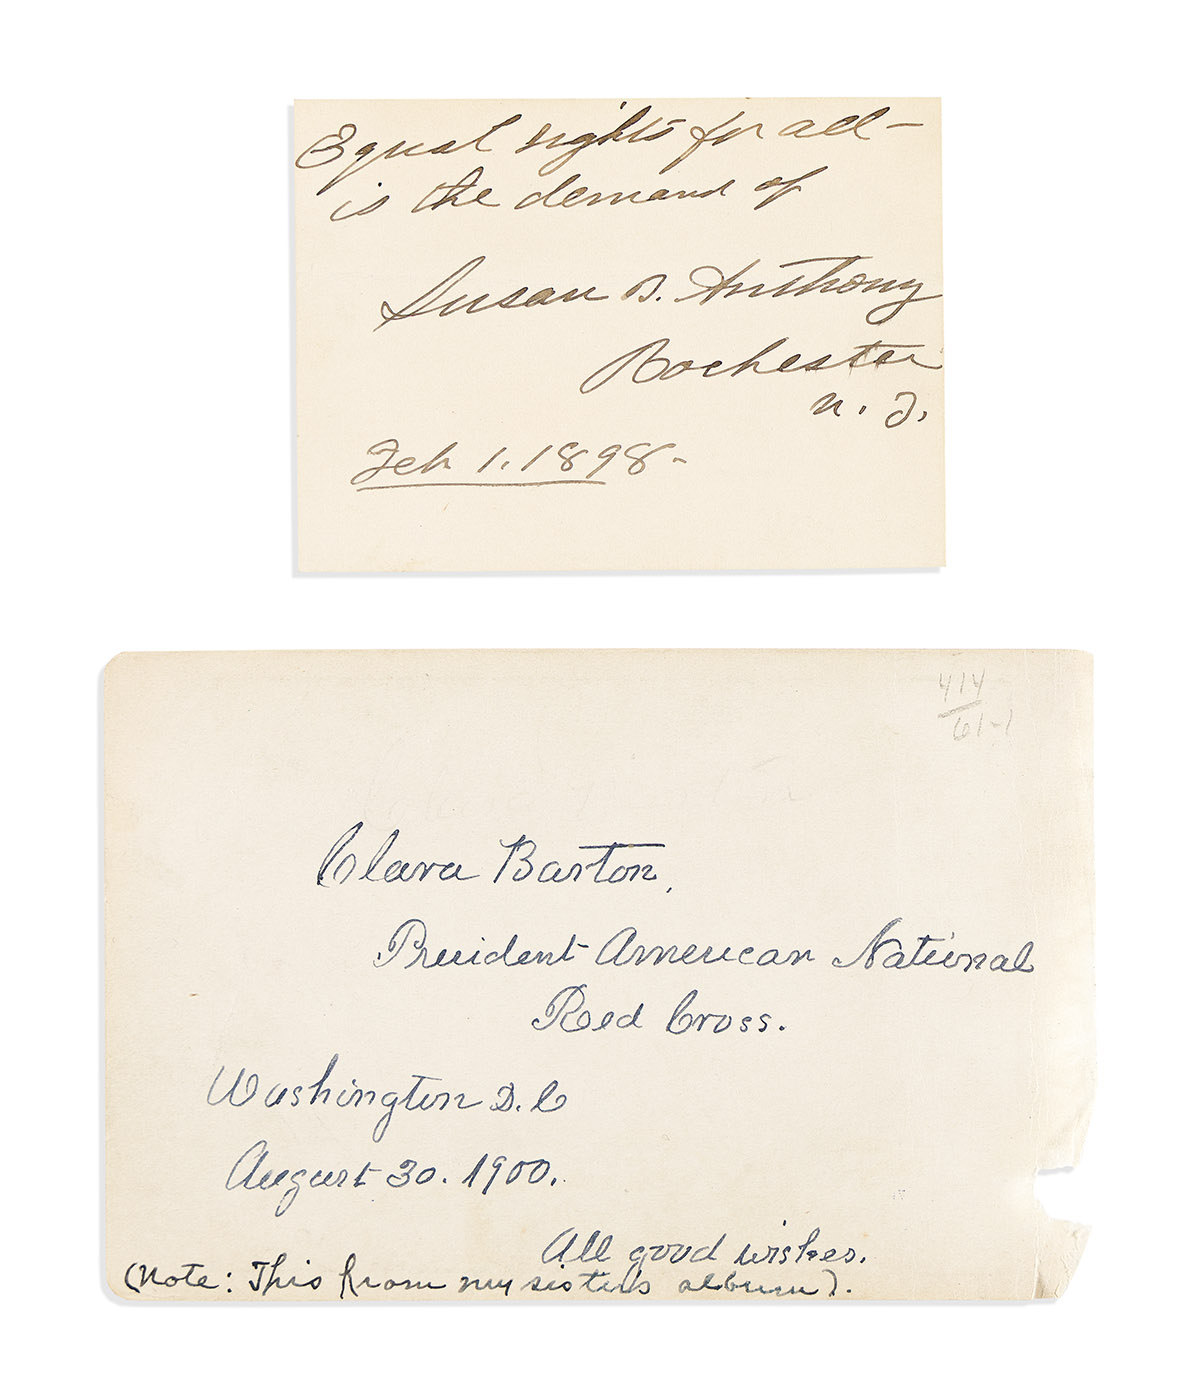 Equal rights for all –
is the demand of
Susan B. Anthony
Rochester
N. Y.
Feb 1. 1898 -
414
61-1
Clara Barton,
President American National
Red Cross.
Washington D. C
August 30. 1900.
All good wishes.
(Note: This from my sister's album).